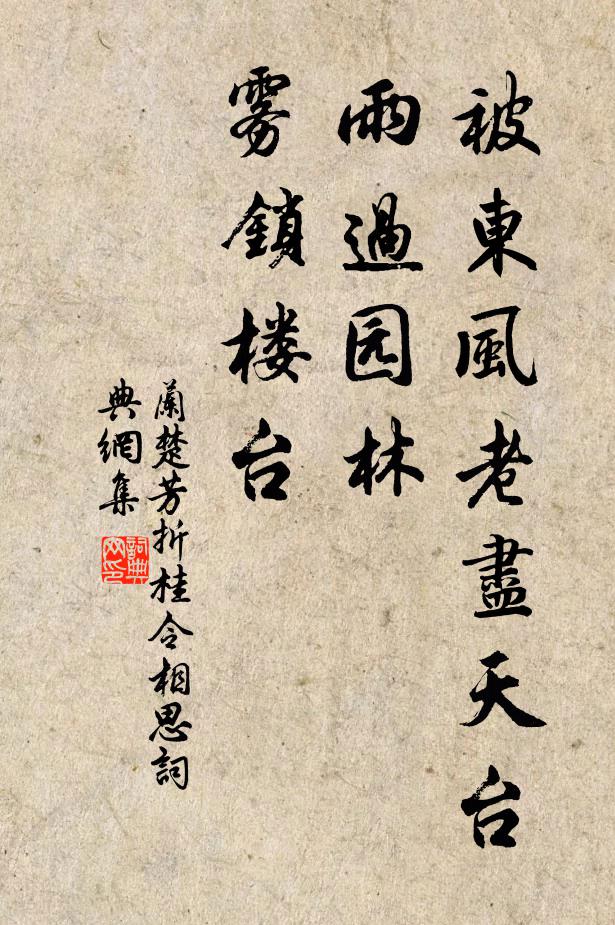 被東風老盡天台
雨過园林
雾鎖楼台
蘭楚芳折桂令相思詞
典網集
詞典
网印